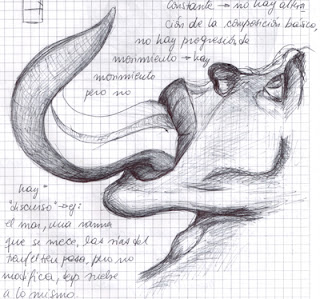 constante → no hay altera
ción de la composición básica,
no hay progresión de
movimiento → hay
movimiento
pero no
hay
"discurso" → ej:
el mar, una rama
que se mece, las
pasa, pero no
modifica, vuelve
a lo mismo.